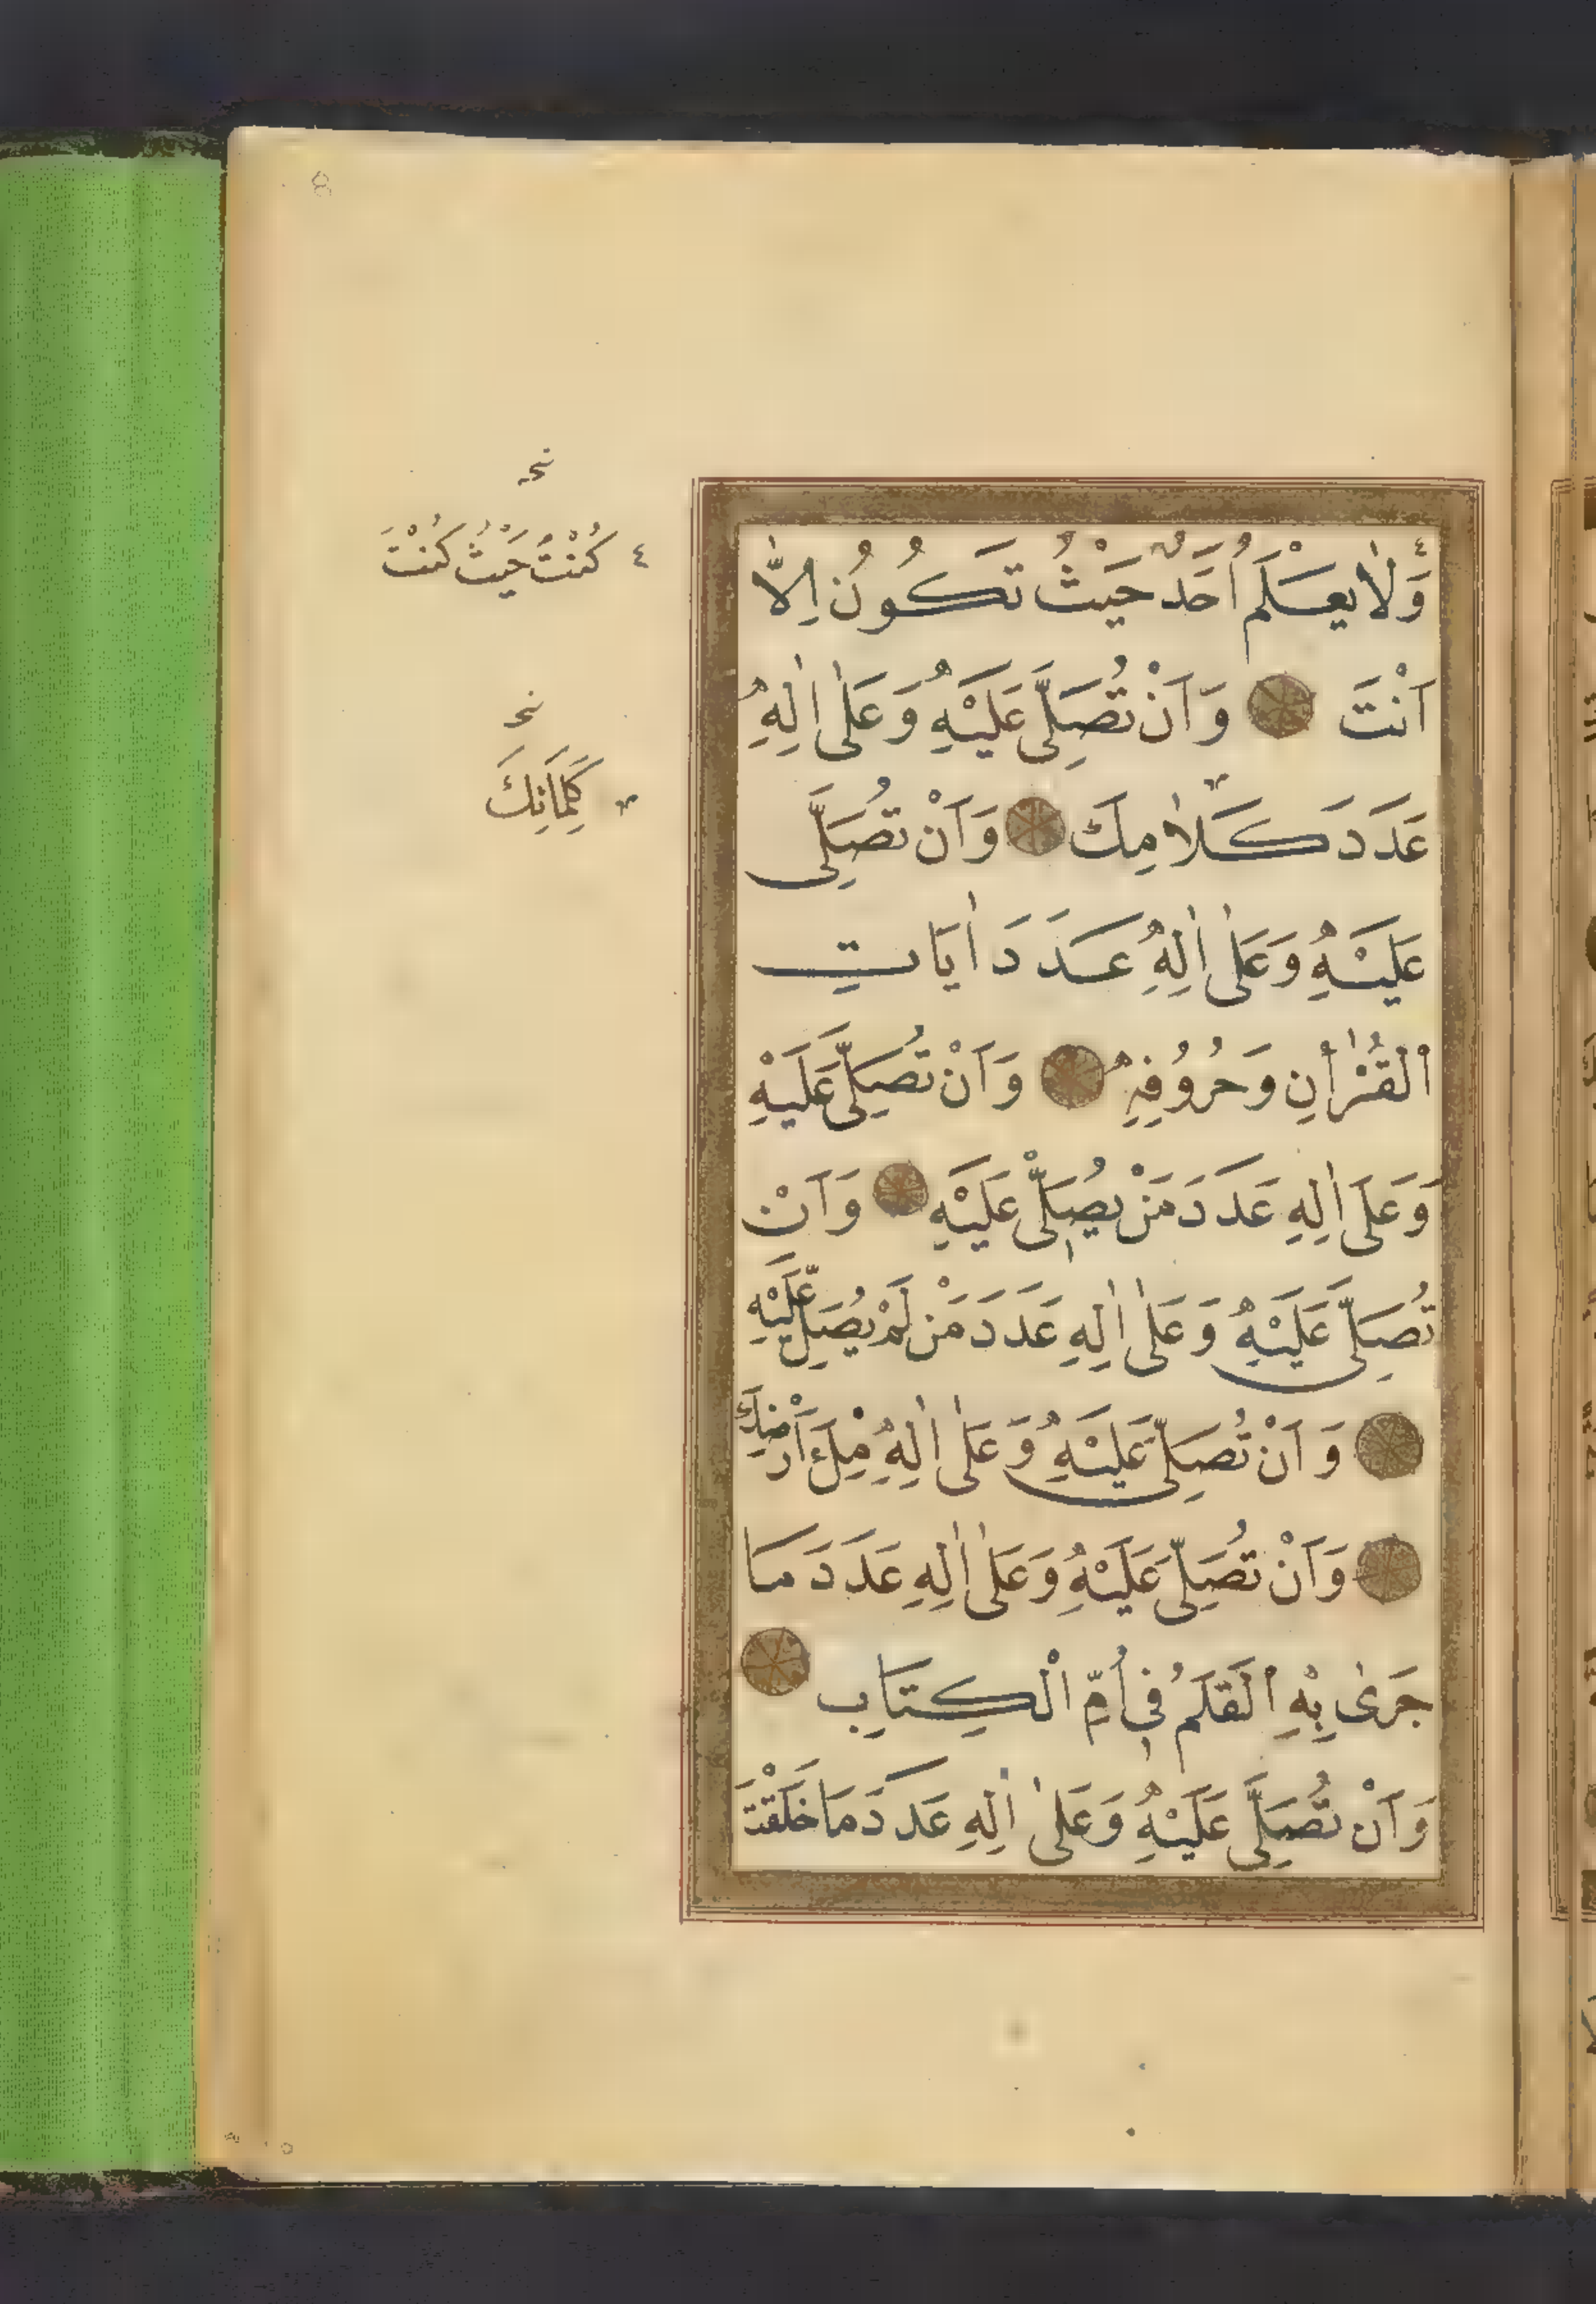 8
وَلَا يَعْلَمُ أَحَدٌ حَيْثُ تَكُونُ إِلَّا
أَنْتَ وَأَنْ تُصَلِّيَ عَلَيْهِ وَعَلَىٰ اٰلِهِ
عَدَدَ كَلَامِكَ وَأَنْ تُصَلِّيَ
عَلَيْهِ وَعَلَىٰ اٰلِهِ عَدَدَ اٰيَاتِ
الْقُرْاٰنِ وَحُرُوفِهِ وَأَنْ تُصَلِّيَ عَلَيْهِ
وَعَلَىٰ اٰلِهِ عَدَدَ مَنْ يُصَلِّي عَلَيْهِ وَأَنْ
تُصَلِّيَ عَلَيْهِ وَعَلَىٰ اٰلِهِ عَدَدَ مَنْ لَمْ يُصَلِّ عَلَيْهِ
وَأَنْ تُصَلِّيَ عَلَيْهِ وَعَلَىٰ اٰلِهِ مِلْءَ أَرْضِكَ
وَأَنْ تُصَلِّيَ عَلَيْهِ وَعَلَىٰ اٰلِهِ عَدَدَ مَا
جَرَىٰ بِهِ الْقَلَمُ فِي أُمِّ الْكِتَابِ
وَأَنْ تُصَلِّيَ عَلَيْهِ وَعَلَىٰ اٰلِهِ عَدَدَ مَا خَلَقْتَ
٤ كُنْتَ حَيْثُ كُنْتَ
كَلِمَاتِكَ